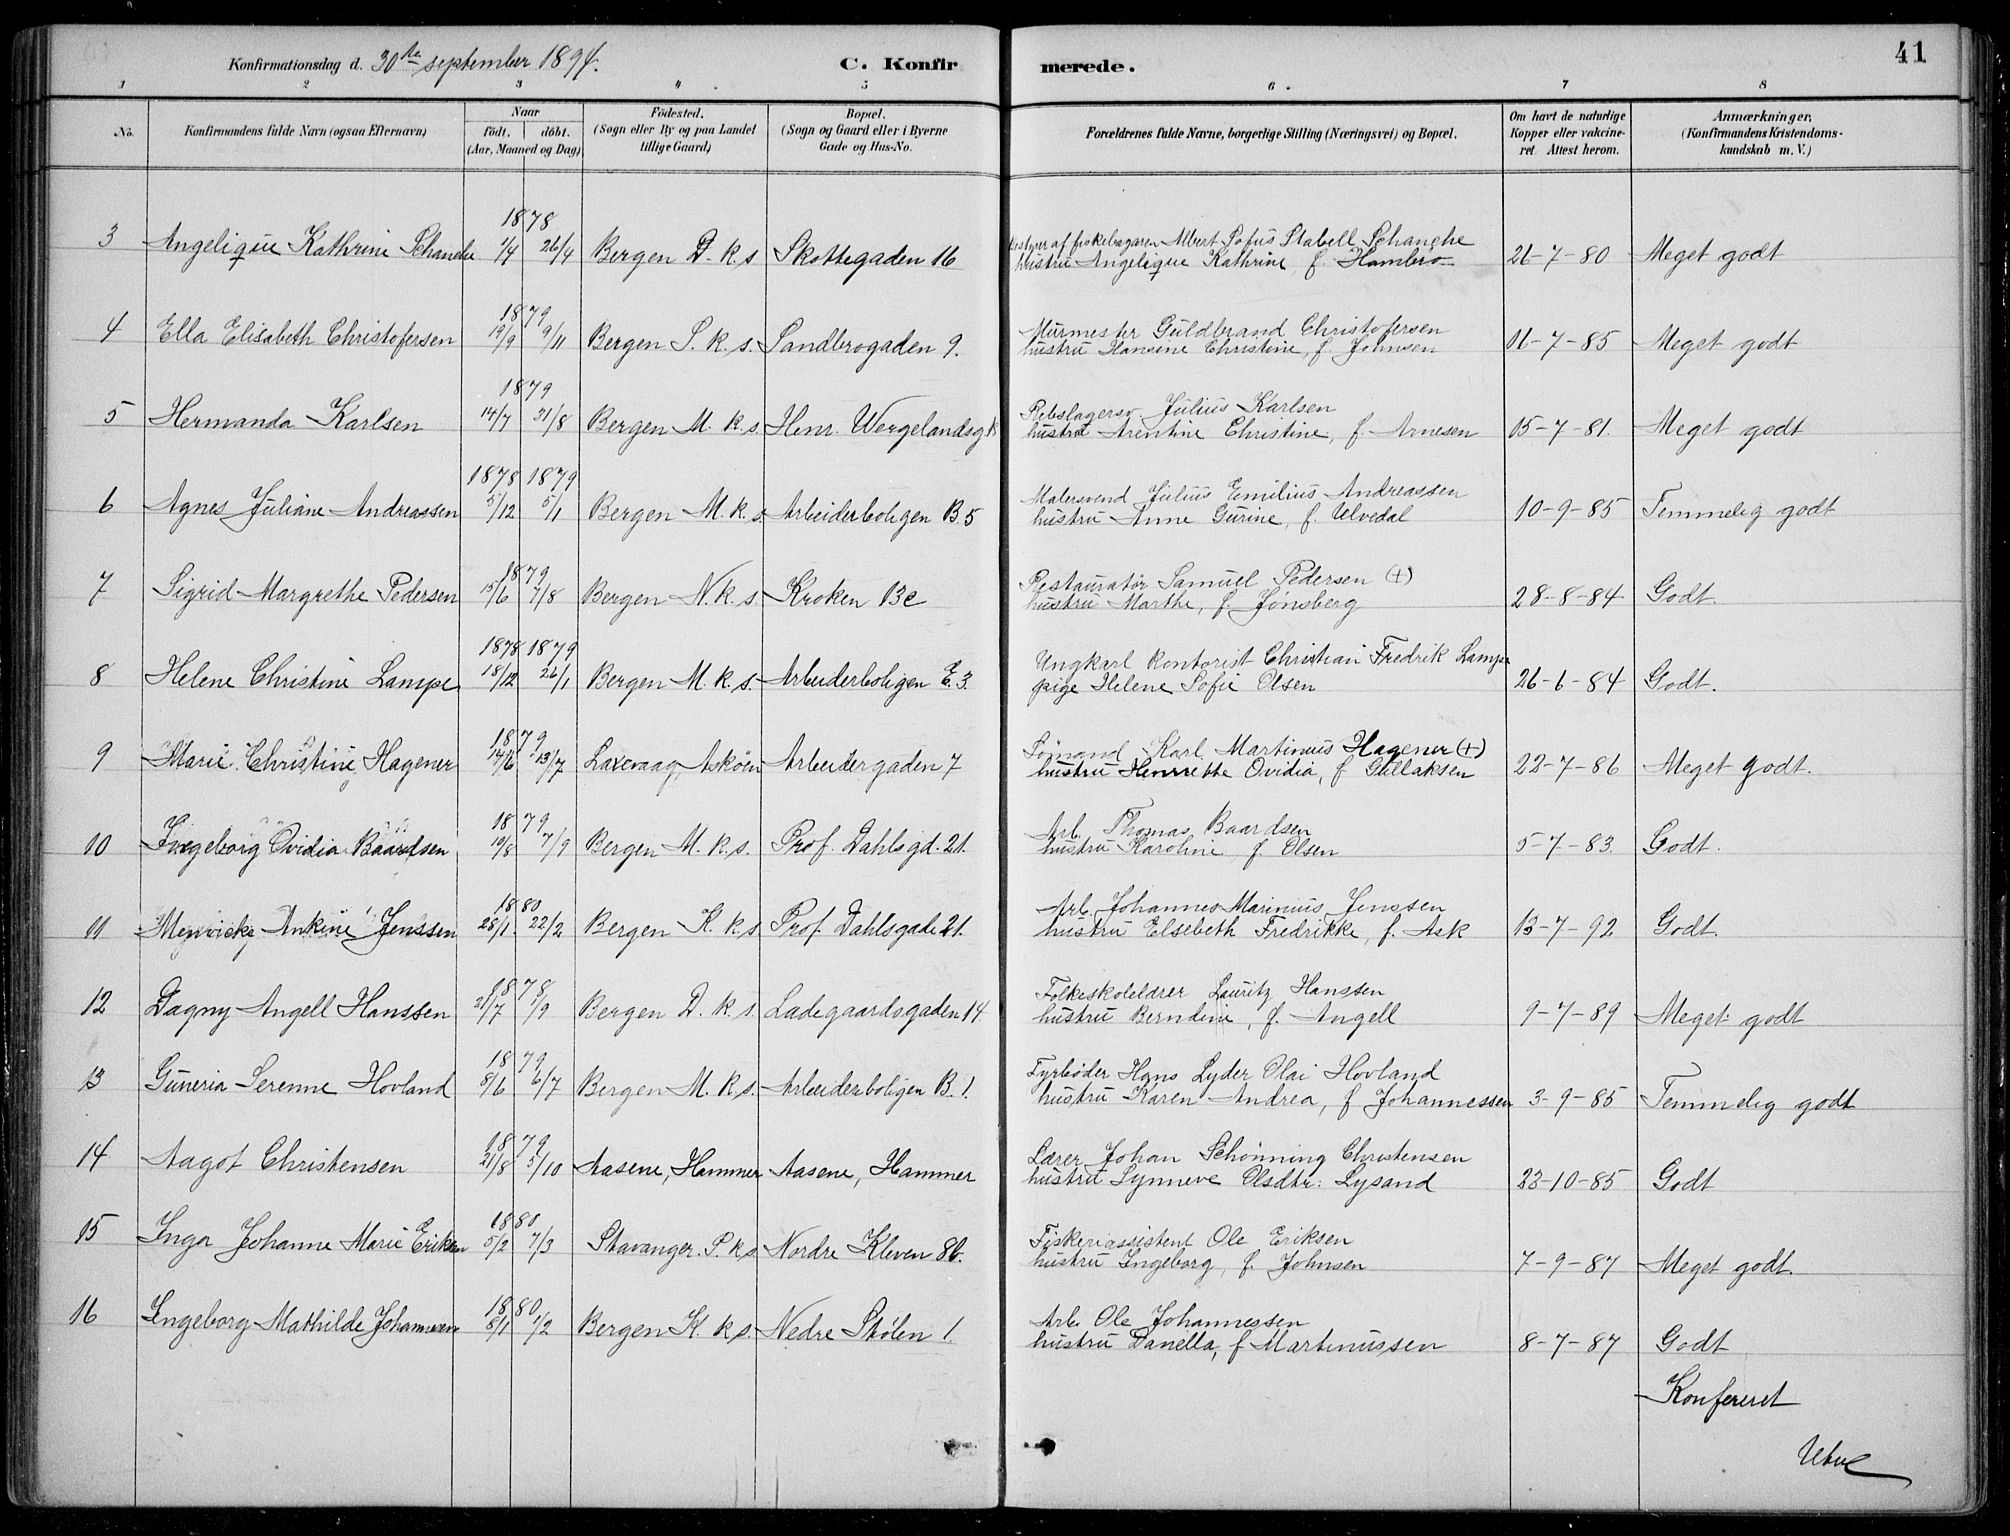 Konfirmationsdag d. 30te september 1894. C. Konfirmerede. 41
1 2 3 4 5 6 7 8
No. Konfirmandens fulde Navn (ogsaa Efternavn) Naar født. døbt. (Aar, Maaned og Dag) Födested. (Sogn eller By og paa Landet tillige Gaard) Bopæl. (Sogn og Gaard eller i Byerne Gade og Hus-No. Forældrenes fulde Navne, borgerlige Stilling (Næringsvei) og Bopæl. Om havt de naturlige Kopper eller vakcineret. Attest herom. Anmærkninger, (Konfirmandens Kristendomskundskab m. V.)
1878
3 Angelique Kathrine Schanche 1/4 26/4 Bergen D. k. s Skottegaden 16 af fiskebagaren Albert Sofus Stabell Schanche
hustru Angelique Kathrine, f. Hambro 21-7-80 Meget godt
1879
4 Ella Elisabeth Christofersen 19/9 9/11 Bergen S. k. s. Sandbrogaden 9. Murmester Guldbrand Christofersen
hustru Hansine Christine, f. Johnsen 16-7-85 Meget godt
1879
5 Hermanda Karlsen 14/7 31/8 Bergen M. k. s. Henr. Wergelandsg. Rebslagersv. Julius Karlsen
hustru Arentine Christine, f. Arnesen 15-7-81. Meget godt
1878 1879
6 Agnes Juliane Andreassen 5/12 5/1 Bergen M. k. s. Arbeiderboligen B. 5 Malersvend Julius Emilius Andreassen
hustru Anne Gurine, f. Ulvedal 10-9-85 Temmelig godt
1879
7 Sigrid Margrethe Pedersen 15/6 7/8 Bergen N. k. s. Kroken 13c Restauratør Samuel Pedersen (+)
hustru Marthe, f. Jonsberg 28-8-84 Godt.
1878 1879
8 Helene Christine Lampe 18/12 26/1 Bergen M. k. s. Arbeiderboligen E. 3. Ungkarl kontorist Christian Fredrik Lampe
pige Helene Sofie Olsen 26-6-84 Godt.
1879
9 Marie Christine Hagener 14/6 13/7 Laxevaag, Askøen Arbeidergaden 7 Sømand Karl Martinius Hagener (+)
hustru Henriette Ovidia, f Gullaksen 22-7-86 Meget godt.
1879
10 Ingeborg Ovidia Baardsen 19/8 7/9 Bergen M. k. s. Prof. Dahlsgd. 21. Arb. Thomas Baardsen
hustru Karoline f. Olsen 5-7-83. Godt.
1880
11 Menricke Ankine Jenssen 28/1. 22/2 Bergen K. k. s Prof. Dahlsgade 21. Arb. Johannes Marinius Jenssen
hustru Elsebeth Fredrikke, f. Ask 13-7-92 Godt.
1878
12 Dagny Angell Hanssen 21/7 1/9 Bergen D. k. s. Ladegaardsgaden 14 Folkeskolelærer Lauritz Hanssen
hustru Berndine, f. Angell 9-7-89 Meget godt
1879
13 Guneria Serenne Hovland 8/6 6/7 Bergen M. k. s. Arbeiderboligen B. 1. Fyrbøder Hans Lyder Olai Hovland
hustru Karen Andrea, f Johannessen 3-9-85 Temmelig godt
1879
14 Aagot Christensen 21/8 5/10 Aasene, Hammer Aasene, Hammer Lærer Johan Schønning Christensen
hustru Synneve Olsdtr. Lysand 23-10-85 Godt
1880
15 Inga Johanne Marie Eriksen 5/2 7/3 Stavanger. P. k. s. Nordre Kleven 8b. Fiskeriassistent Ole Eriksen
hustru Ingeborg, f. Johnsen 7-9-87 Meget godt.
1880
16 Ingeborg Mathilde Johannessen 8/1 1/2 Bergen K. k. s. Nedre Stølen 1. Arb. Ole Johannessen
hustru Danella, f Martinussen 8-7-87 Godt
Konfereret